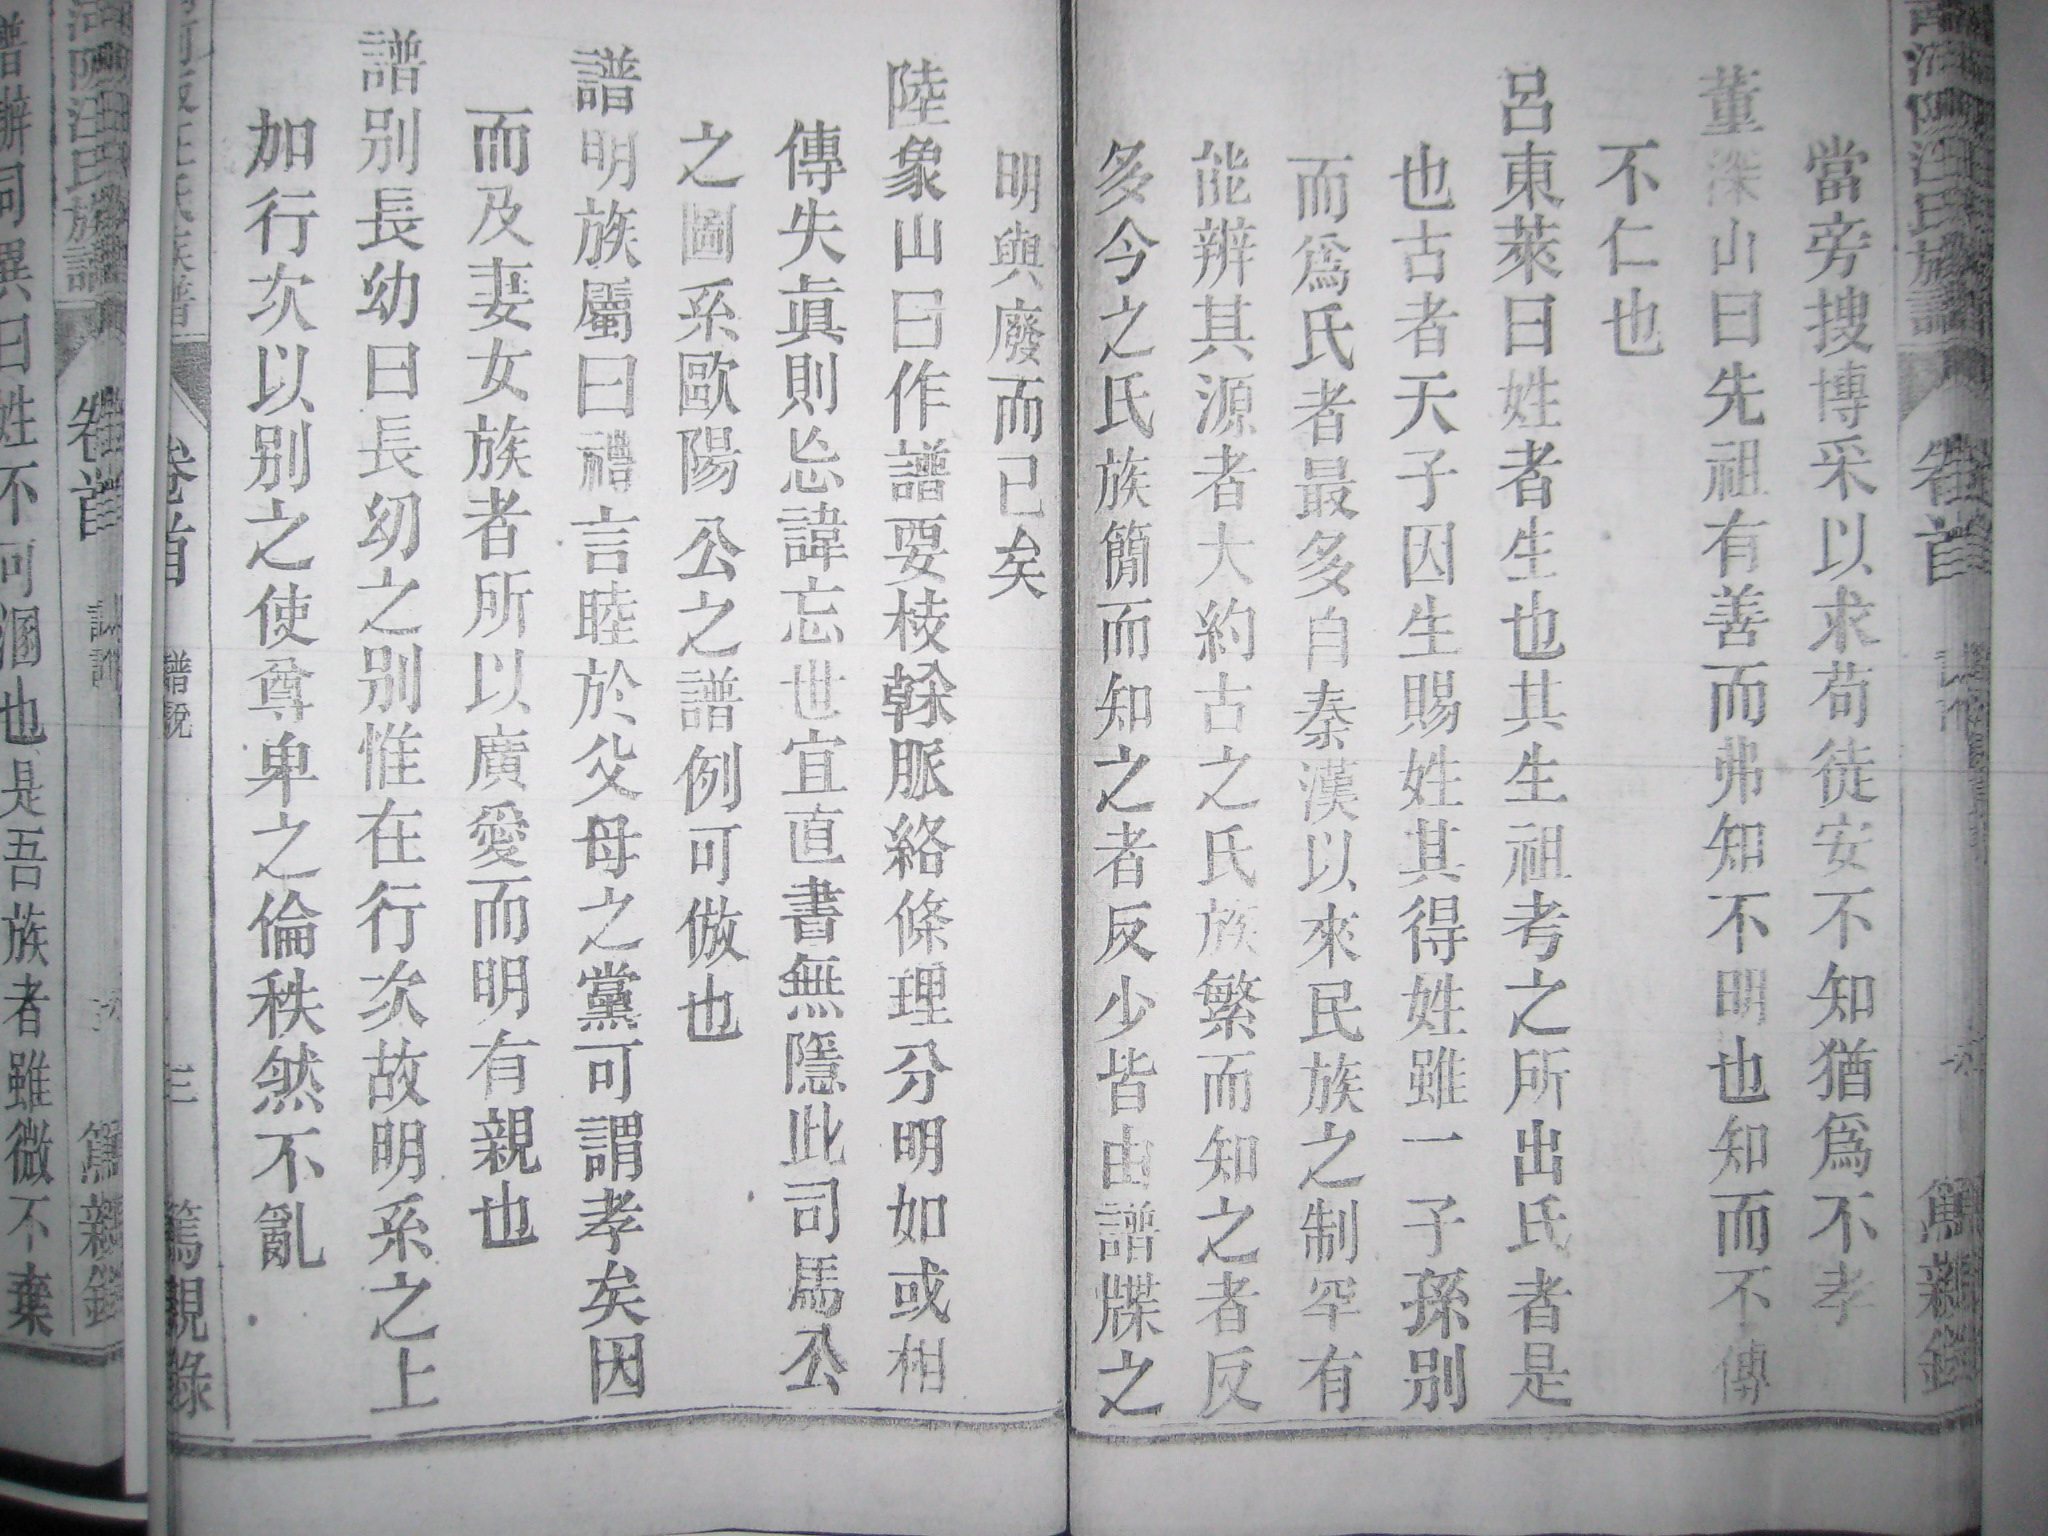 當旁搜博采以求苟徒安不知猶爲不孝
董深山曰先祖有善而弗知不明也知而不傳
不仁也
呂東萊曰姓者生也其生祖考之所出氏者是
也古者天子因生賜姓其得姓雖一子孫別
而爲氏者最多自秦漢以來民族之制罕有
能辨其源者大約古之氏族繁而知之者反
多今之氏族簡而知之者反少皆由譜牒之
明與廢而已矣
陸象山曰作譜要枝榦脈絡條理分明如或相
傳失眞則忘諱忘世宜直書無隱此司馬公
之圖系歐陽公之譜例可倣也
譜明族屬曰禮言睦於父母之黨可謂孝矣因
而及妻女族者所以廣愛而明有親也
譜別長幼曰長幼之別惟在行次故明系之上
加行次以別之使尊卑之倫秩然不亂
卷首
譜說
三
篤親錄
譜辨同異曰姓不可溷也是吾族者雖微不棄